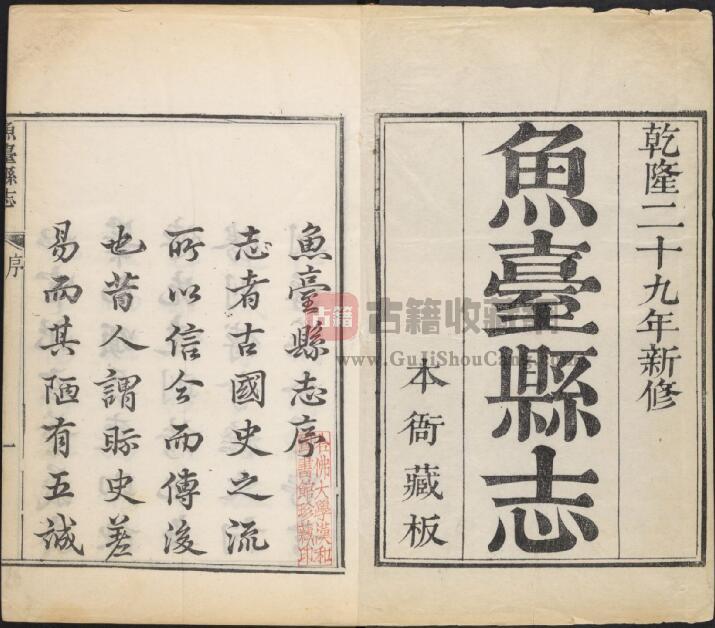 乾隆二十九年新修
魚臺縣志
本衙藏板
魚臺縣志序
志者古國史之流
所以信今而傳後
也昔人謂眎史差
易而其陋有五誠
魚臺縣志
序
一
哈佛大學漢和
圖書館珍藏印
古籍
古籍收藏
www.GuJiShouCang.com